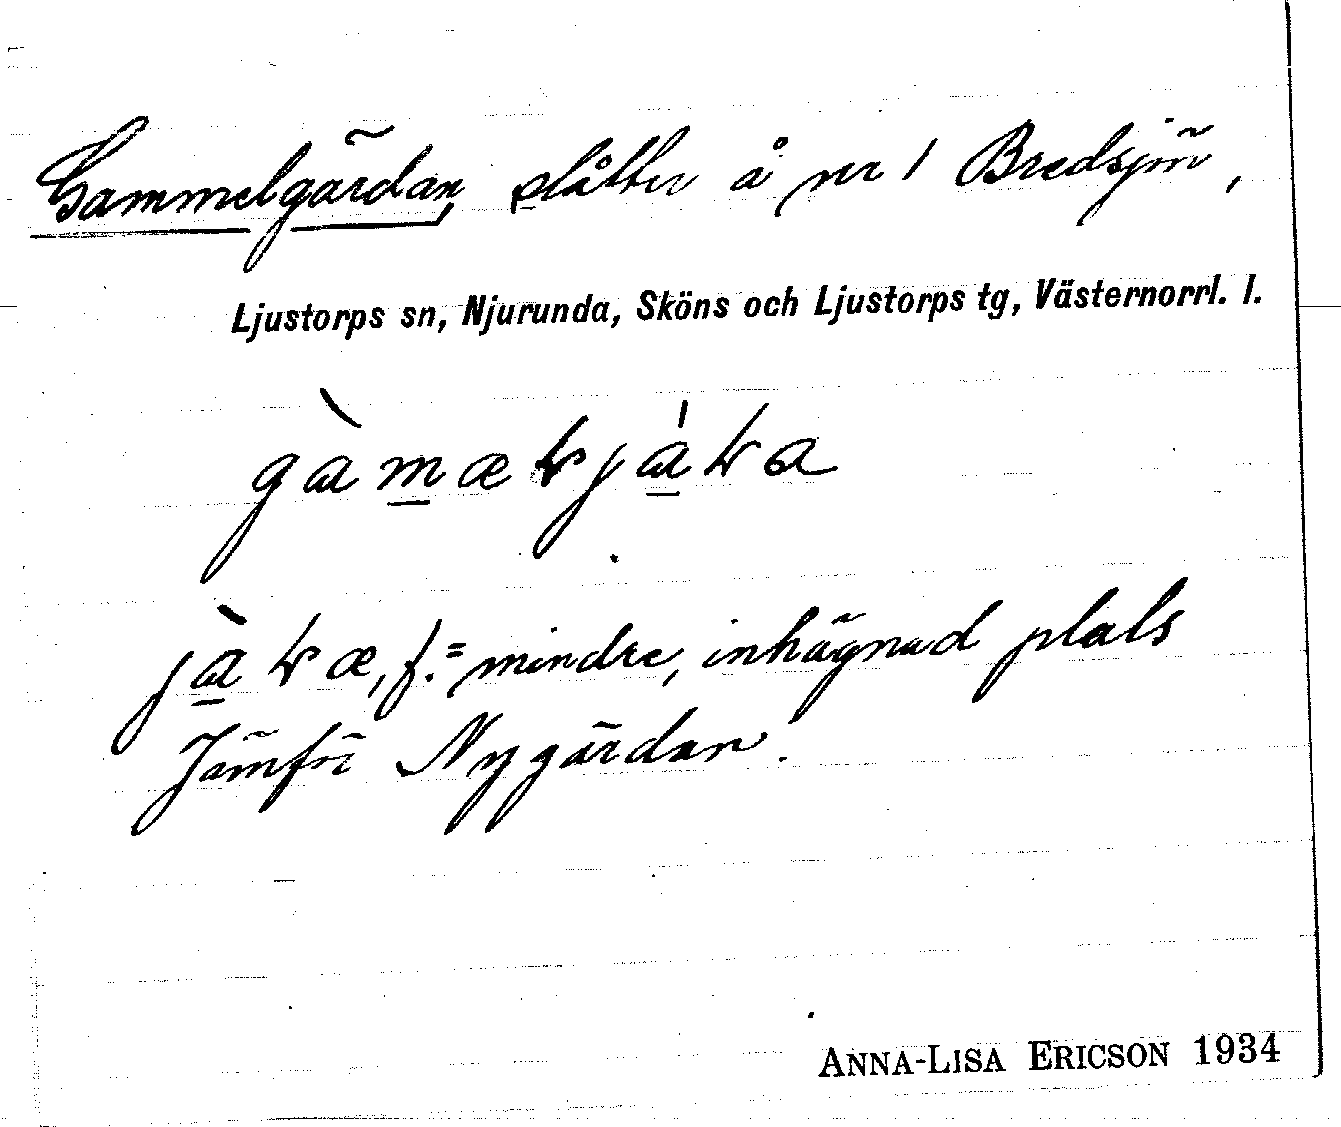 Gammelgärdan, slåtter å nr 1 Bredsjön,
Ljustorps sn, Njurunda, Sköns och Ljustorps tg, Västernorrl. l.
f. = mindre, inhägnad plats
Jämför Nygärdan.
ANNA-LISA ERICSON 1934